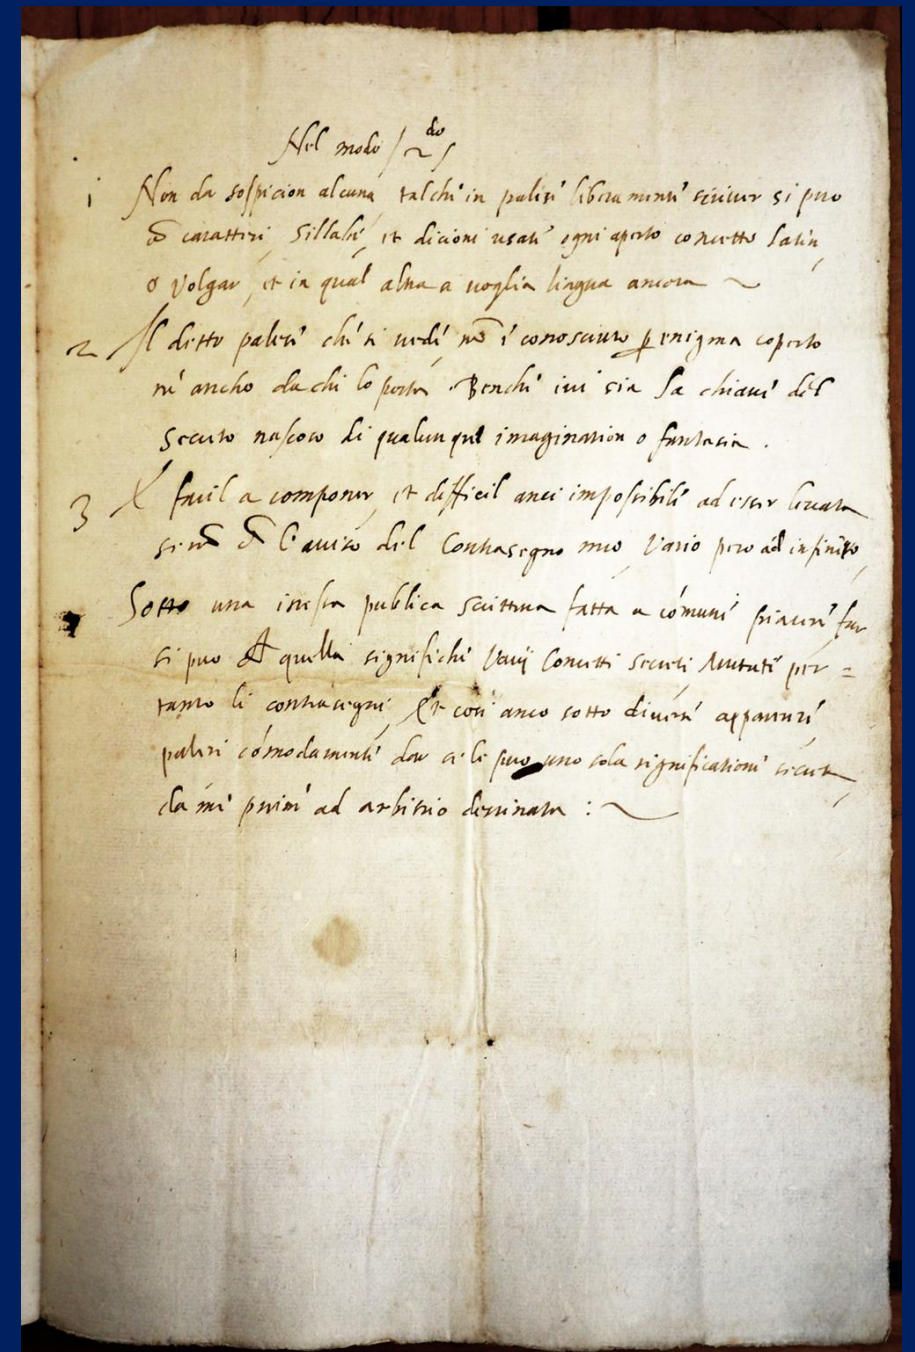 Nel modo / 2do /
1 Non da sospicion alcuna, talche in palese liberamente scriver si puo
caratteri, Sillabe, et dicioni usate ogni aperto concetto latin,
o Volgar, et in qual altra a voglia lingua ancora ~
2 Il detto palese che si vede no e conosciuto p enigma coperto
ne ancho da chi lo porta. Benche ivi sia la chiave del
Secreto nascoso di qualunque imagination o fantasia.
3 E facil a componer, et difficil anci impossibile ad esser levata
l'aviso del Contrasegno mio, Vario pero ad infinito,
Sotto una istessa publica Scrittura fatta a comune piacere far
si puo quella significhi Varij Concetti Secreti Mutate per=
tanto li contrasegni, Et cosi anco sotto diverse apparenze
palesi comodamente dar se le puo una sola significatione secreta,
da me prima ad arbitrio destinata : ~